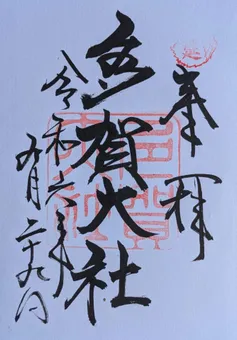 奉拝
多賀大社
令和六年
月二十九日